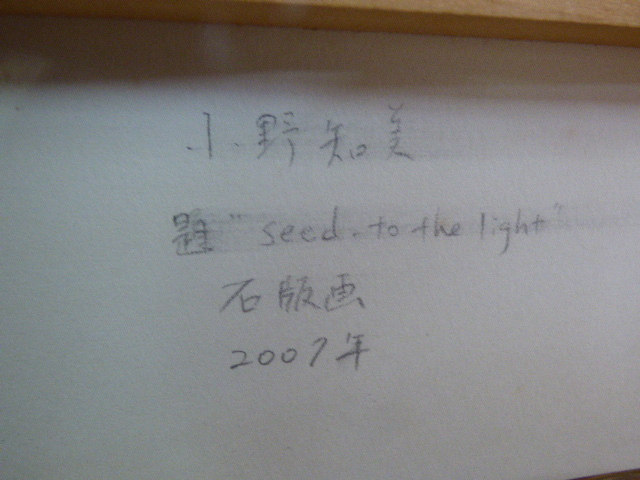 小野知美
題 "seed. to the light"
石版画
2007年